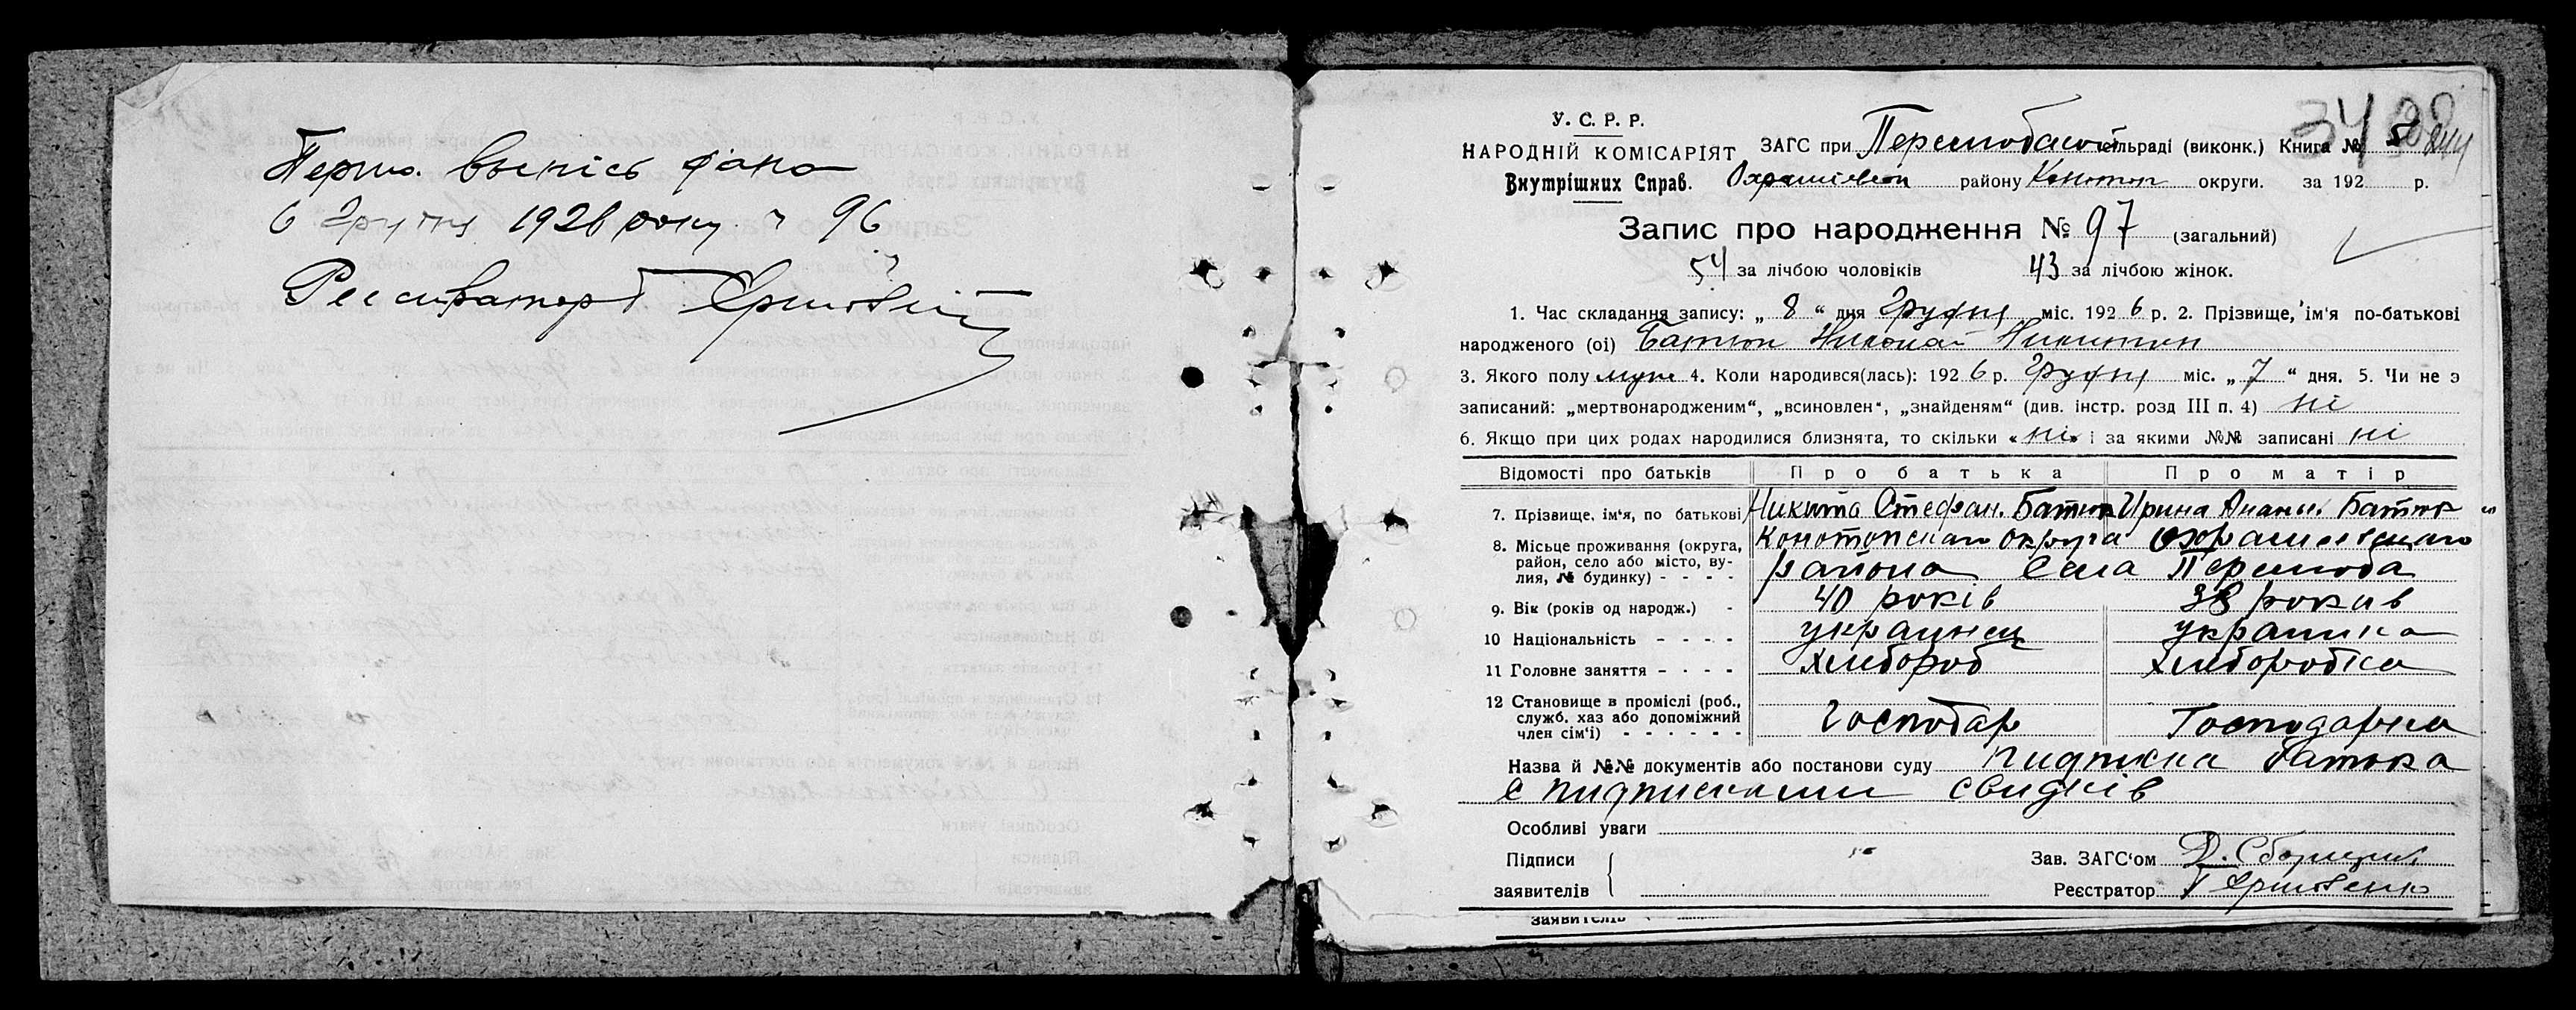 Перш. выпісь дана
6 Грудня 1926 року № 96
Реєстратор
У. С. Р. Р.
НАРОДНІЙ КОМІСАРІЯТ
Внутрішних Справ.
ЗАГС при сільраді (виконк.) Книга № 5
району Конотоп округи. за 192 р.
Запис про народження № 97 (загальний)
54 за лічбою чоловіків 43 за лічбою жінок.
1. Час складання запису: „ 8 “ дня Грудня міс. 192 6 р. 2. Прізвище, ім'я по-батькові
народженого (ої) Батюк Николай Никитин
3. Якого полу муж 4. Коли народився(лась): 192 6 р. Грудня міс. „ 7 “ дня. 5. Чи не з
записаний: „мертвонародженим“, „всиновлен“, „знайденям“ (див. інстр. розд III п. 4) ні
6. Якщо при цих родах народилися близнята, то скільки «ні» і за якими №№ записані ні
Відомості про батьків Про батька Про матір
7. Прізвище, ім'я, по батькові Никита Стефан. Батюк Ирина Анань. Батюк
8. Місьце проживання (округа, район, село або місто, вулия, № будинку) - - - - Конотопскаго округа
района Села Перемога
9. Вік (років од народж.) - 40 років 38 роков
10 Національність - - - - украинец украинка
11 Головне заняття - - - - хлибороб хлиборобка
12 Становище в проміслі (роб., служб. хаз або допоміжний член сім'ї) - - - - - - Господар Господарка
Назва й №№ документів або постанови суду пидписка батька
с пидписками свидків
Особливі уваги
Підписи
заявителів
Зав. ЗАГС'ом
Реєстратор
заявителів